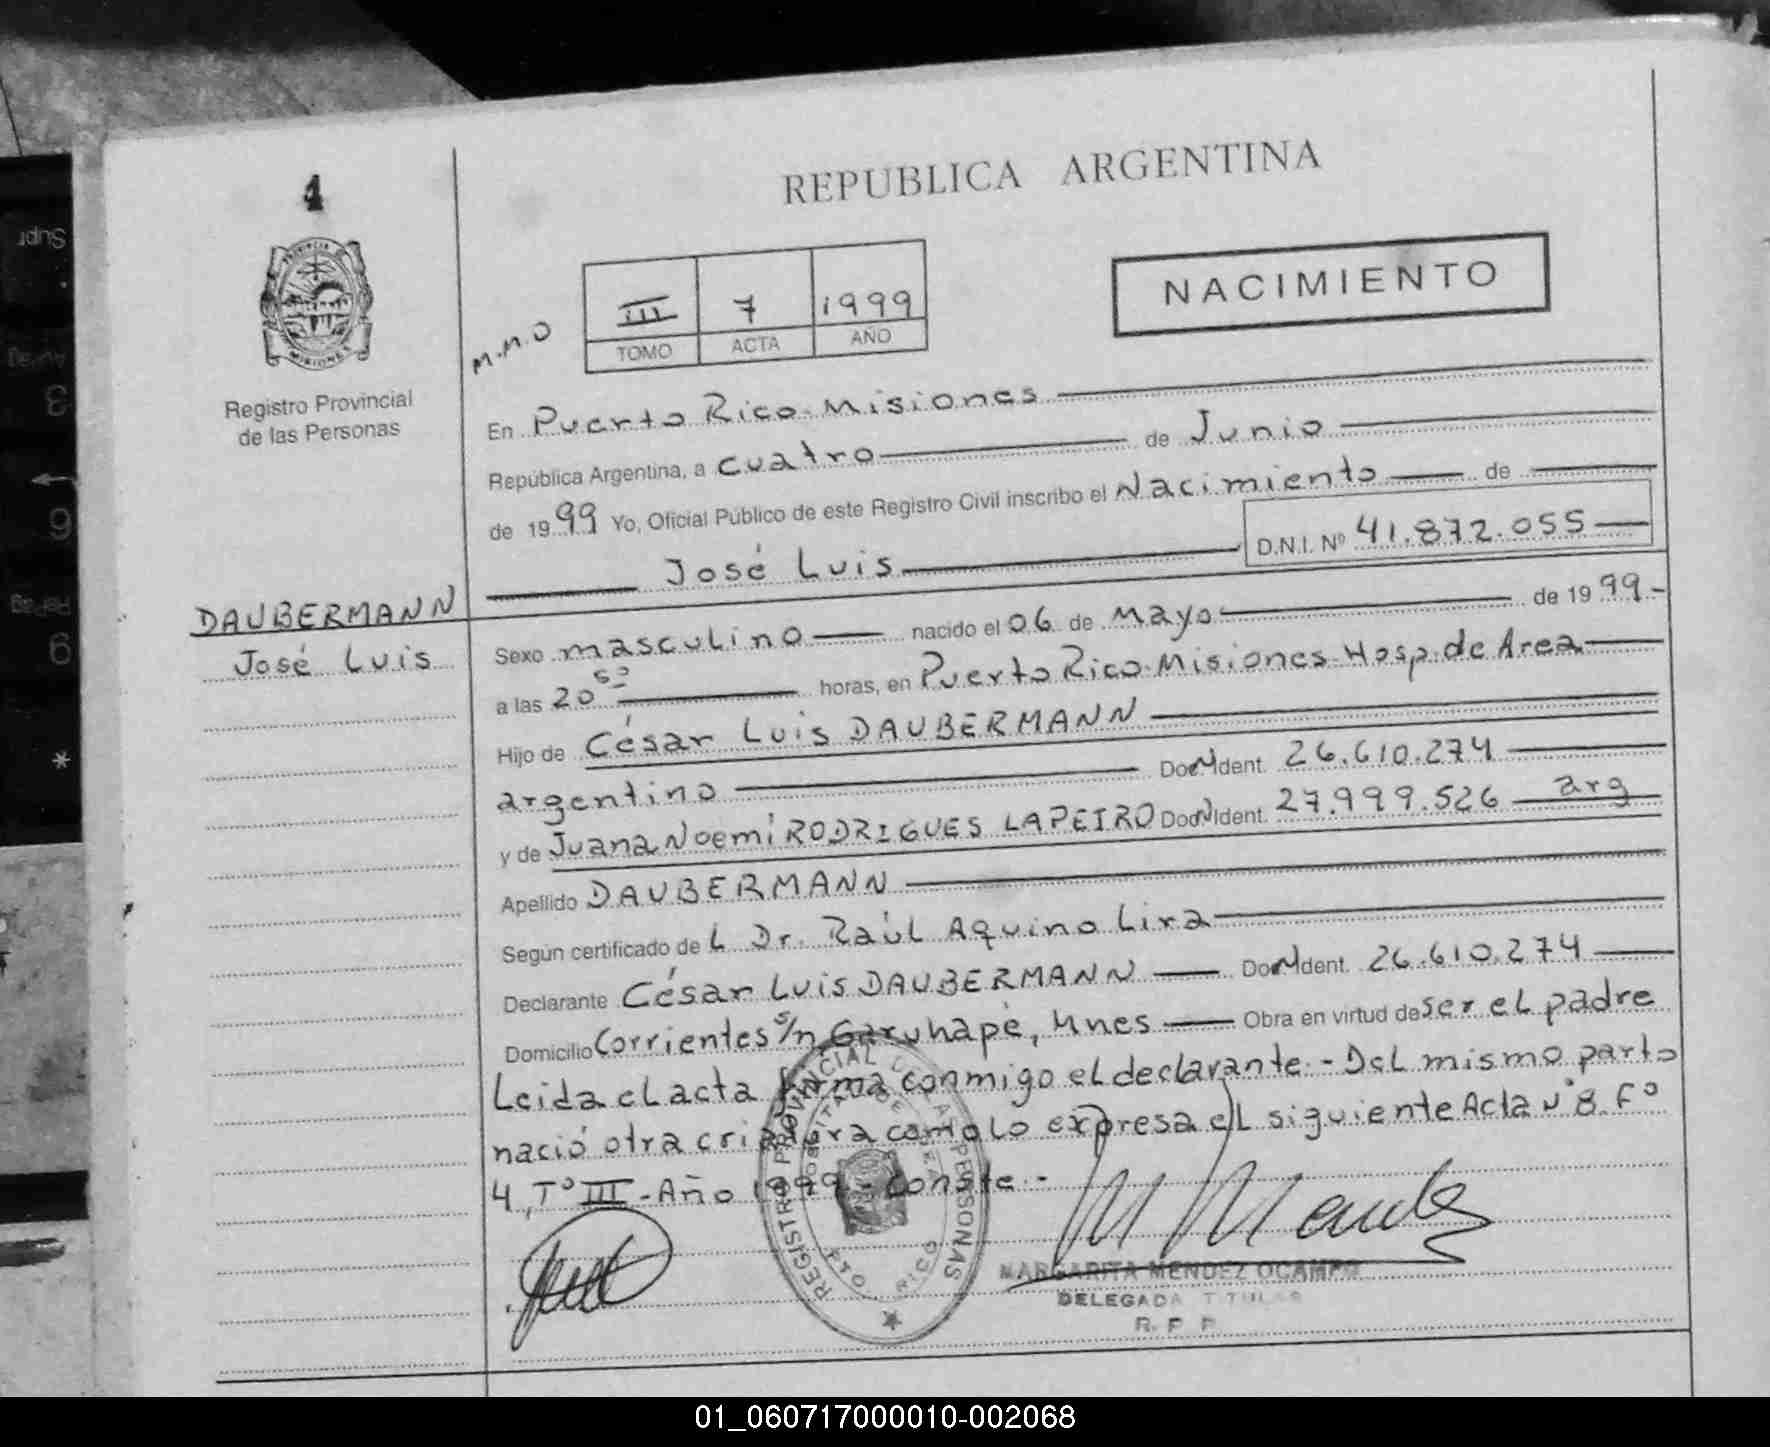 4
REPUBLICA ARGENTINA
PROVINCIA
MISIONES
Registro Provincial
de las Personas
M.M.O
III 7 1999
TOMO ACTA AÑO
NACIMIENTO
En Puerto Rico-Misiones
República Argentina, a cuatro de Junio
de 1999 Yo, Oficial Público de este Registro Civil inscribo el Nacimiento de
José Luis D.N.I. Nº 41.872.055
DAUBERMANN
José Luis
Sexo masculino nacido el 06 de Mayo de 1999-
a las 20 50 horas, en Puerto Rico-Misiones-Hosp. de Area
Hijo de César Luis DAUBERMANN
argentino Doc Ident. 26.610.274
y de Juana Noemi RODRIGUES LAPEIRO Doc Ident. 27.999.526 arg
Apellido DAUBERMANN
Según certificado de L Dr. Raúl Aquino Lira
Declarante César Luis DAUBERMANN Doc Ident. 26.610.274
Domicilio Corrientes s/n, Garuhapé, Mnes Obra en virtud de ser el padre
Leida el acta firma conmigo el declarante.- Del mismo parto
nació otra criatura como lo expresa el siguiente Acta Nº 8. Fº
4, Tº III - Año 1999 - Conste.-
REGISTRO PROVINCIAL DE LAS PERSONAS
PTO RICO
M Mendez
MARGARITA MENDEZ OCAMPO
DELEGADA TITULAR
R. P. P.
Supr
3
6
9
*
01_060717000010-002068